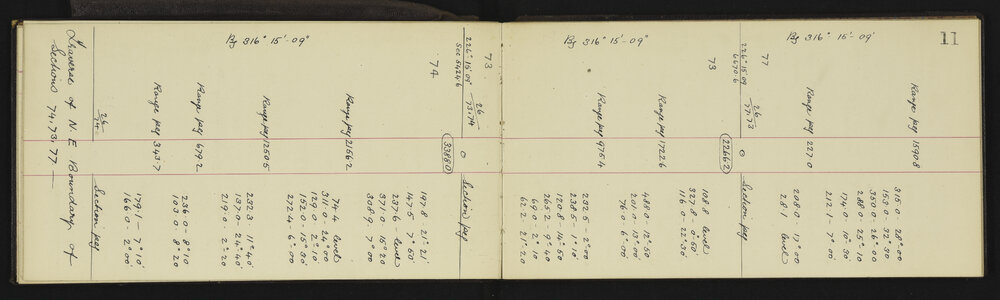 11
Traverse of N.E Boundary of
Sections 74. 73. 77 —
Section peg
179.1 — 7° 10'
166.0 2° 00'
Range peg 343.7
Range peg 679.2
236.0 8° 10
103.0 8° 20
Bg 316° 15' - 09"
232.3 11° 40'
137.0 24° 40'
219.0 2° 20
Range peg 1250.5
74.4 level
311.0 24° 00
129.0 2° 10
152.0 15° 30
272.4 6° 00
Range peg 2156.2
197.8 21° 21'
147.5 7° 50'
237.6 — level
371.0 15° 20
308.9 7° 00
74
3388.0
226° 15' 09"
Sec 5424.6
26
73.74
73
Section peg
Bg 316° 15' - 09"
232.5 — 2° 00
238.5 — 1° 10
120.8 14° 50
265.2 9° 40
69.0 2° 10
62.2 21° 20
Range peg 975.4
488.0 - 12° 50
201.0 13° 00
76.0 6° 00
Range peg 1722.6
108.8 level
327.8 - 0° 50'
116.0 22° 30
73
2266.2
226° 15' 09
6670.6
26
77.73
77
Section peg
Bg 316° 15' - 09"
208.0 13° 00
28.1 level
Range peg 227.0
315.0 28° 00
153.0 32° 30
353.0 26° 00
288.0 25° 10
174.0 10° 30
212.1 7° 00
Range peg 1590.8